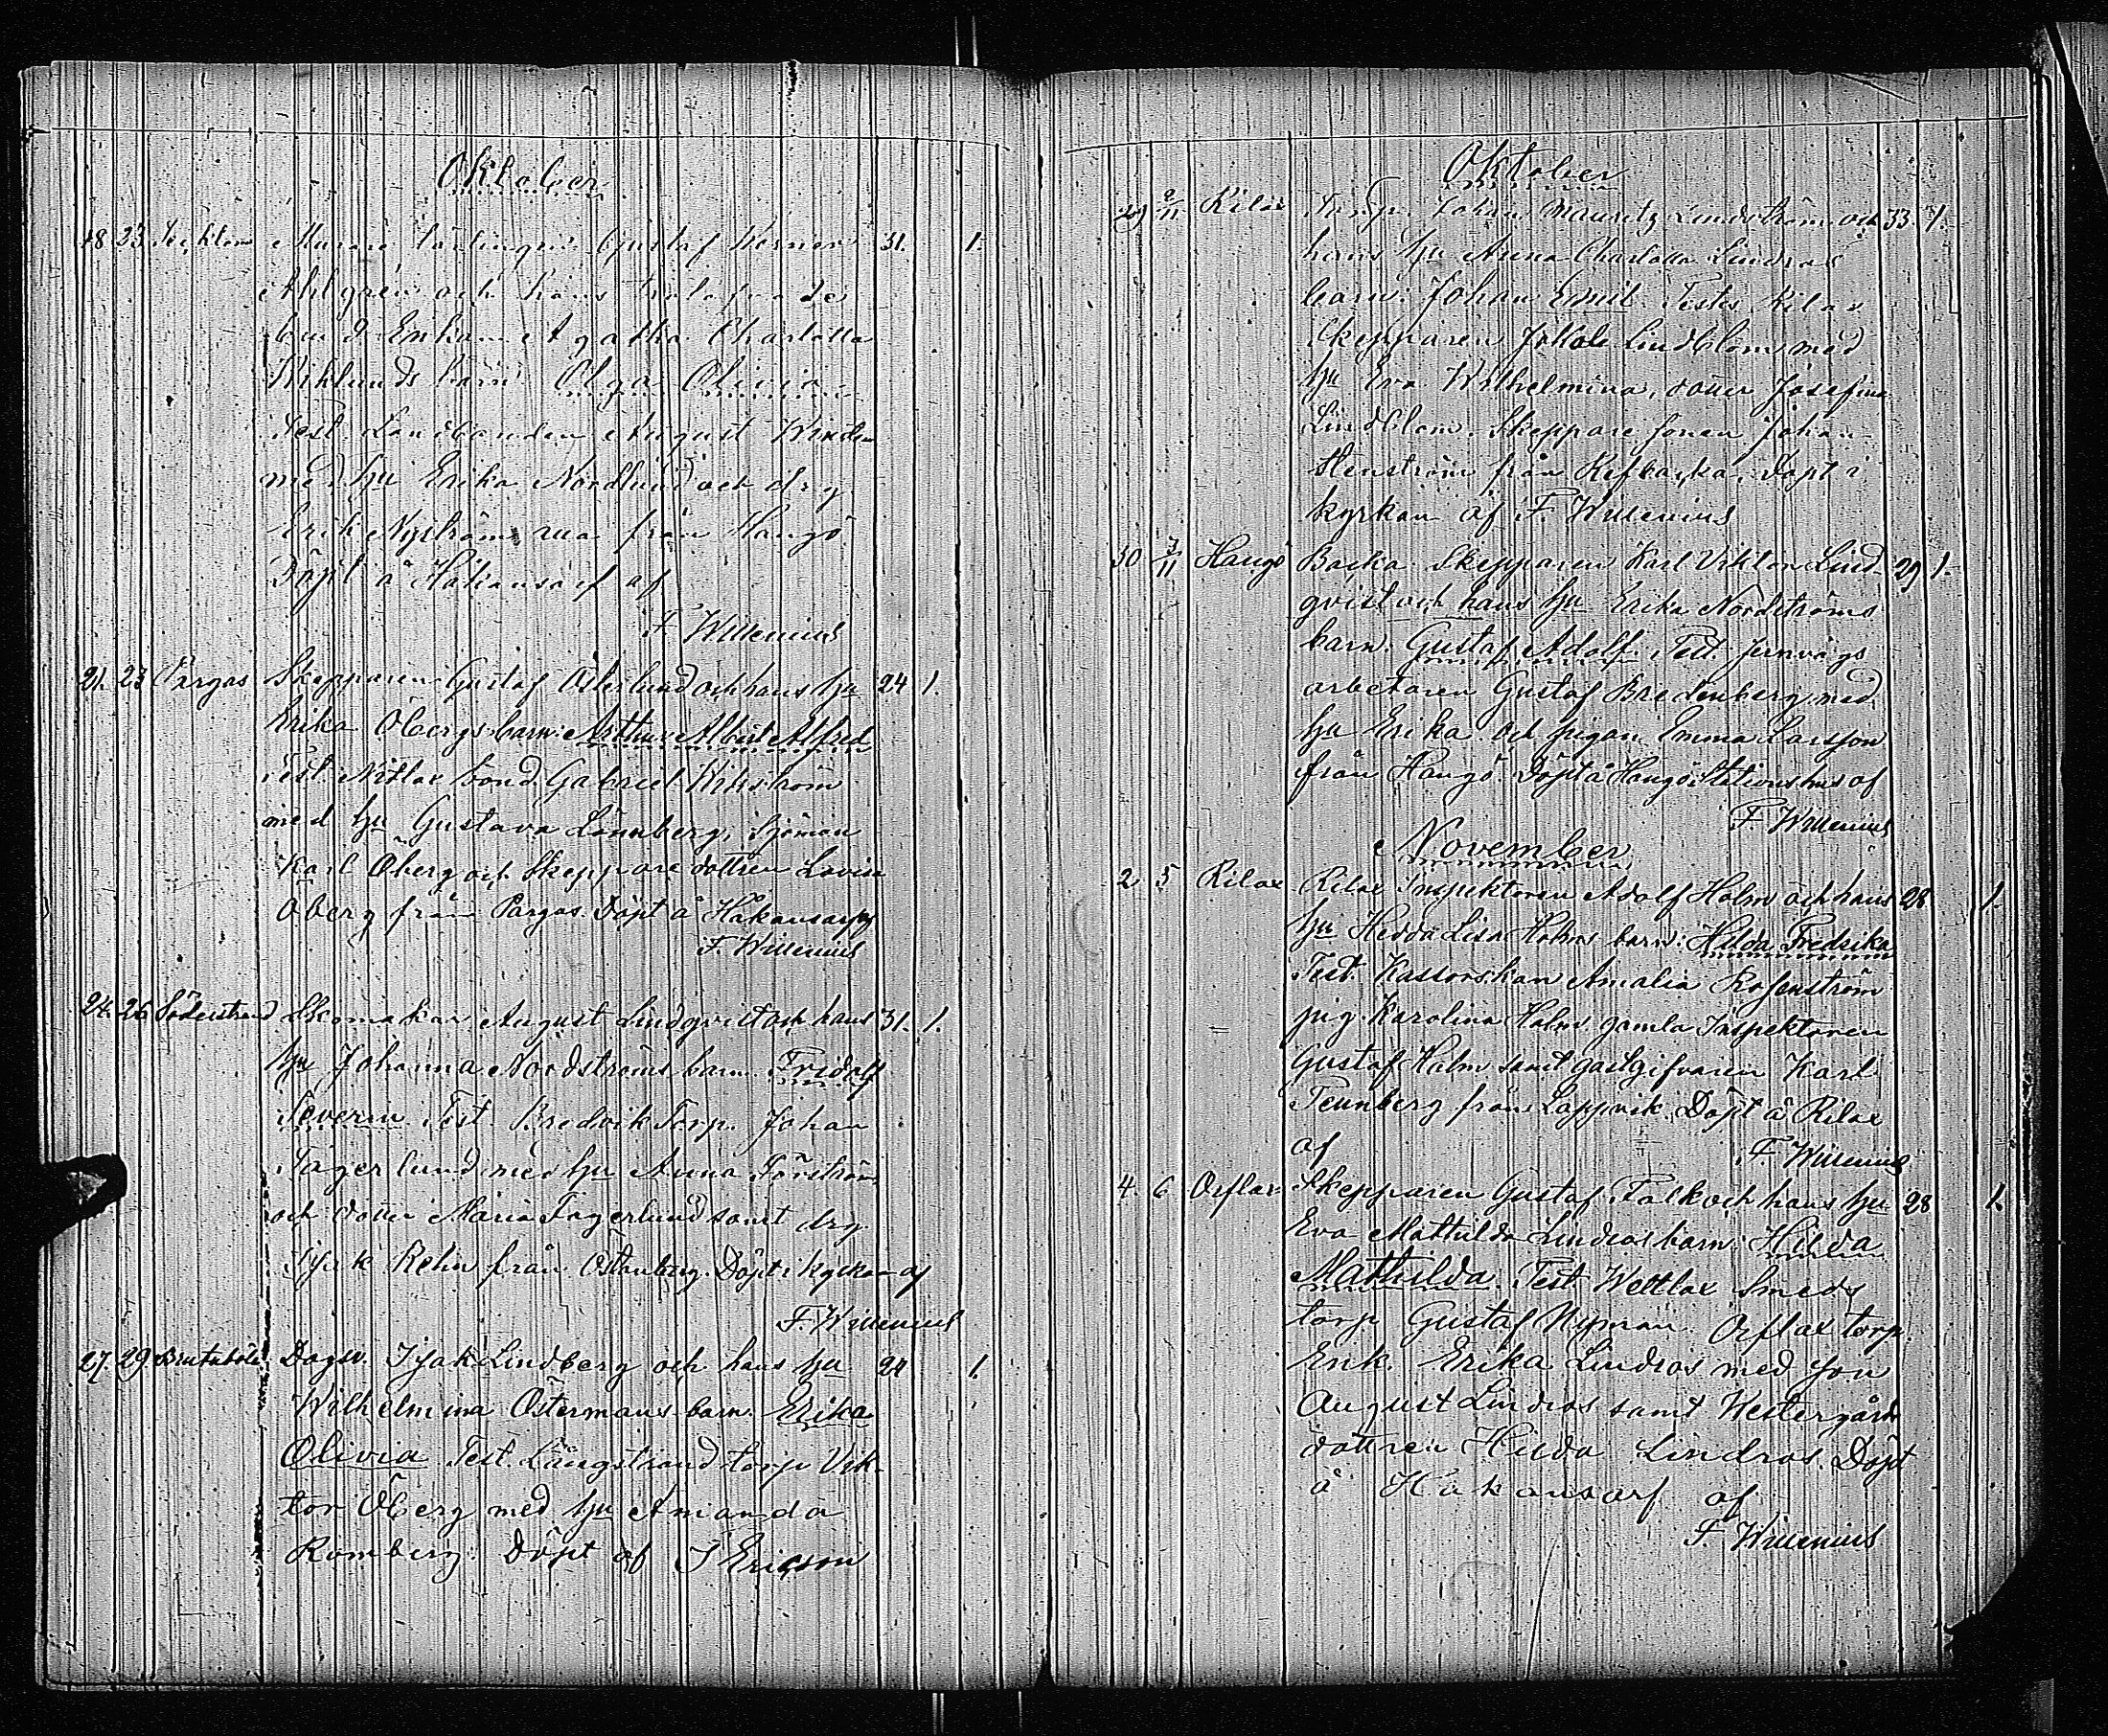 Oktober
18. 23. Murare lärlingen Gustaf 31. 1.
Ahlgren och hans
Enkan Agatha Charlotta
Wiklunds barn Olga Olivia
Test. Landbonden August
med hu Erika Nordlund och drg
Erik Nyström från Hangö
Döpt å Håkansarf af
F. Willenius
21. 23 Pargas Skepparen Gustaf Österlund och hans hu 24 1.
Erika Öbergs barn: Arthur Albert Alfred
Test Nitlax bond. Gabriel Wikström
med hu Gustava Lönnberg, Sjöman
Karl Öberg och Skeppare dottren Lovisa
Öberg från Pargas. Döpt å Håkansarf af
F. Willenius
24. 26 Söderstrand Skomakar August Lindqvist och hans 31. 1.
hu Johanna Nordströms barn Fridolf
Severin. Test. Bredvik Torp. Johan
Fagerlund med hu Anna
och dotter Maria Fagerlund samt drg.
Isak Rehn från Östanberg. Döpt i kyrkan af
F. Willenius
27. 29. Dagsv. Isak Lindberg och hans hu 24 1.
Wilhelmina Östermans barn. Erika
Olivia Test. Långstrand torp. Vik-
tor Öberg med hu Amanda
Romberg. Döpt af I Ericson
Oktober
29 2/11 Rilax Torp. Johan Mauritz Lindström och 33. 1.
hans hu Anna Charlotta Lindros
barn: Johan Emil Testes Rilax
Skepparen Jakob Lindblom med
hu Eva Wilhelmina, dotter Josefina
Lindblom. Skeppare sonen Johan
Stenström från Refbacka. Döpt i
kyrkan af F. Willenius
30 3/11 Hangö Backa Skepparen Karl Viktor Lind- 29 1.
qvist och hans hu Erika Nordströms
barn. Gustaf Adolf. Test. Jernvägs
arbetaren Gustaf Bredenberg med
hu Erika och pigan Emma Larsson
från Hangö. Döpt å Hangö Stationshus af
F. Willenius
November
2. 5 Rilax Rilax Inspektoren Adolf Holm och hans 28 1.
hu Hedda Lisa Holms barn: Hilda Fredrika
Test. Kastorskan Amalia Rosenström
pig. Karolina Holm. gamla Inspektoren
Gustaf Holm samt gästgifvaren Karl
Tennberg från Lappvik. Döpt å Rilax
af F. Willenius
4. 6 Orflax Skepparen Gustaf Falk och hans hu 28 1.
Eva Mathilda Lindros barn: Hilda
Mathilda. Test Wettlax Smeds
torp Gustaf Nyman. Orflax torp.
Enk. Erika Lindros med son
August Lindros samt Westergårds
dottren Hilda Lindros. Döpt
å Håkansarf af
F. Willenius